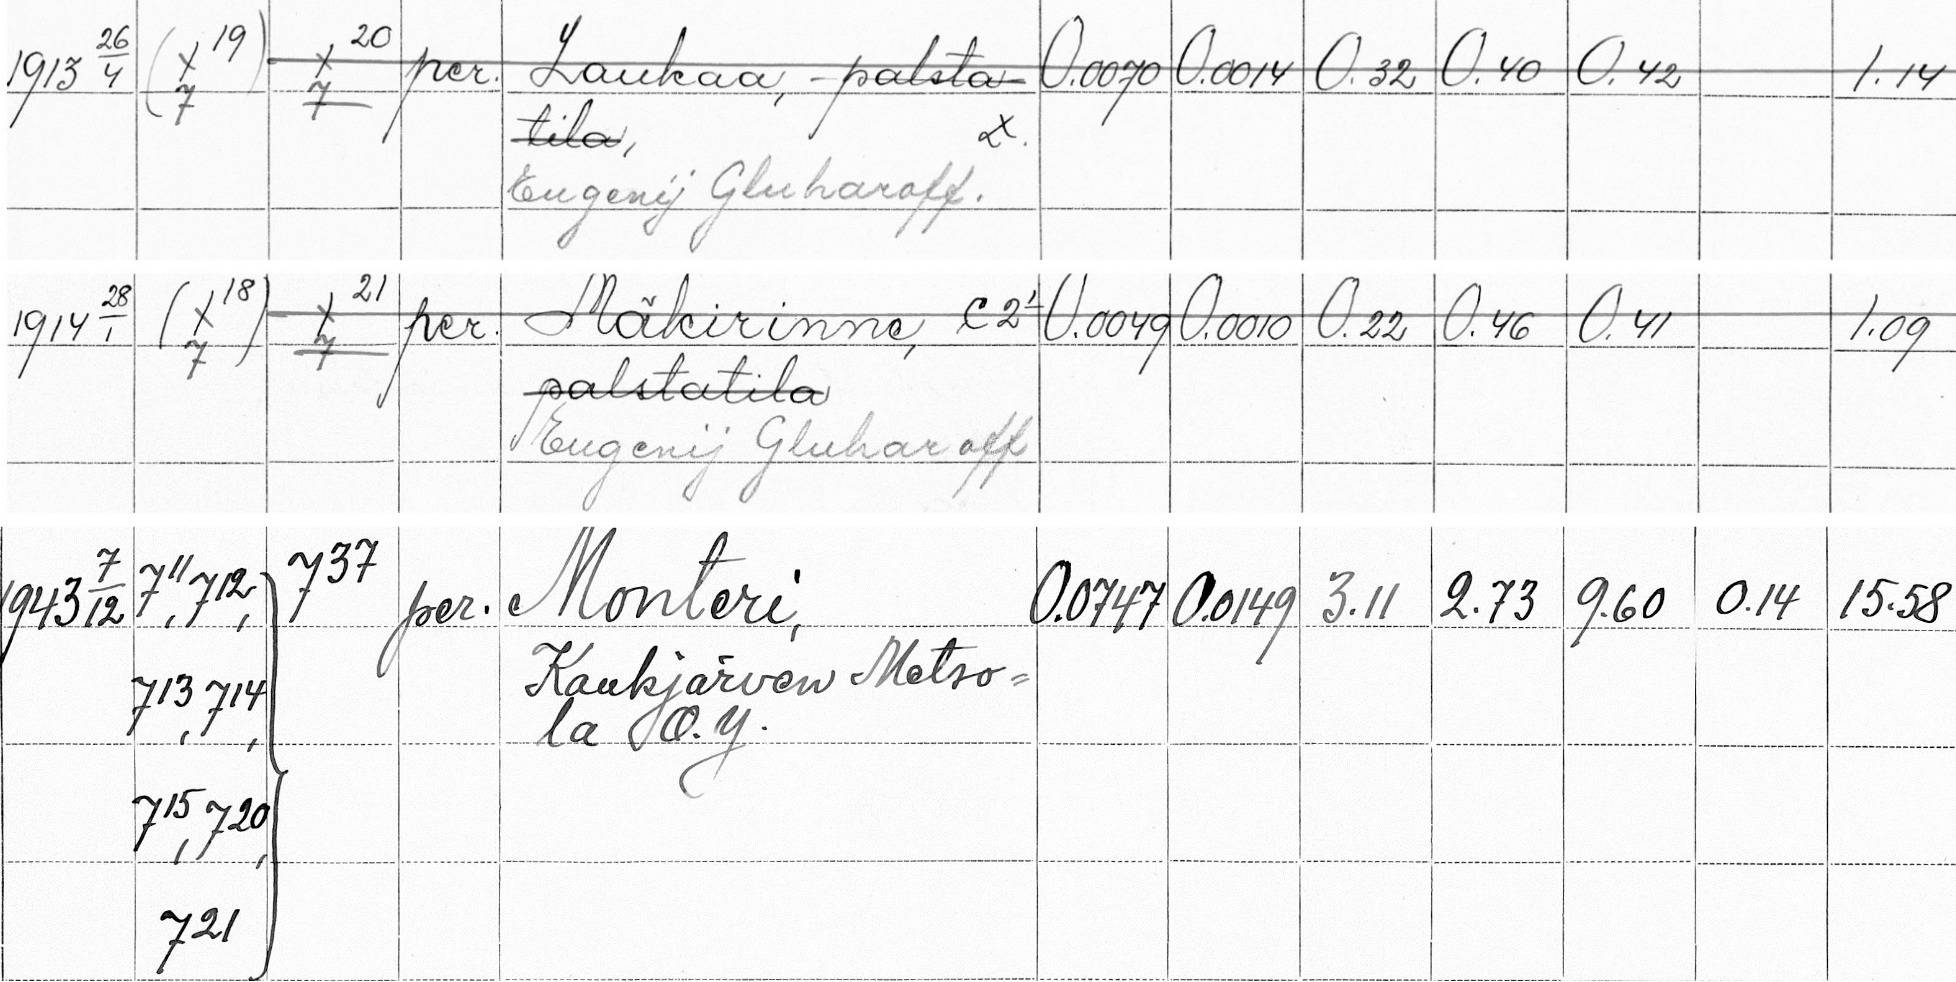 1913 26/4 (X 7 19) X 7 20 per. Laukaa, palsta- 0.0070 0.0014 0.32 0.40 0.42 1.14
tila, x.
Eugenij Gluharoff.
1914 28/1 (X 7 18) X 7 21 per. Mäkirinne, C 21 0.0049 0.0010 0.22 0.46 0.41 1.09
palstatila
Eugenij Gluharoff
1943 7/12 7 11, 7 12, 7 37 per. Monteri, 0.0747 0.0149 3.11 2.73 9.60 0.14 15.58
Kaukjärven Metso=
7 13, 7 14, la O.Y.
7 15, 7 20,
7 21